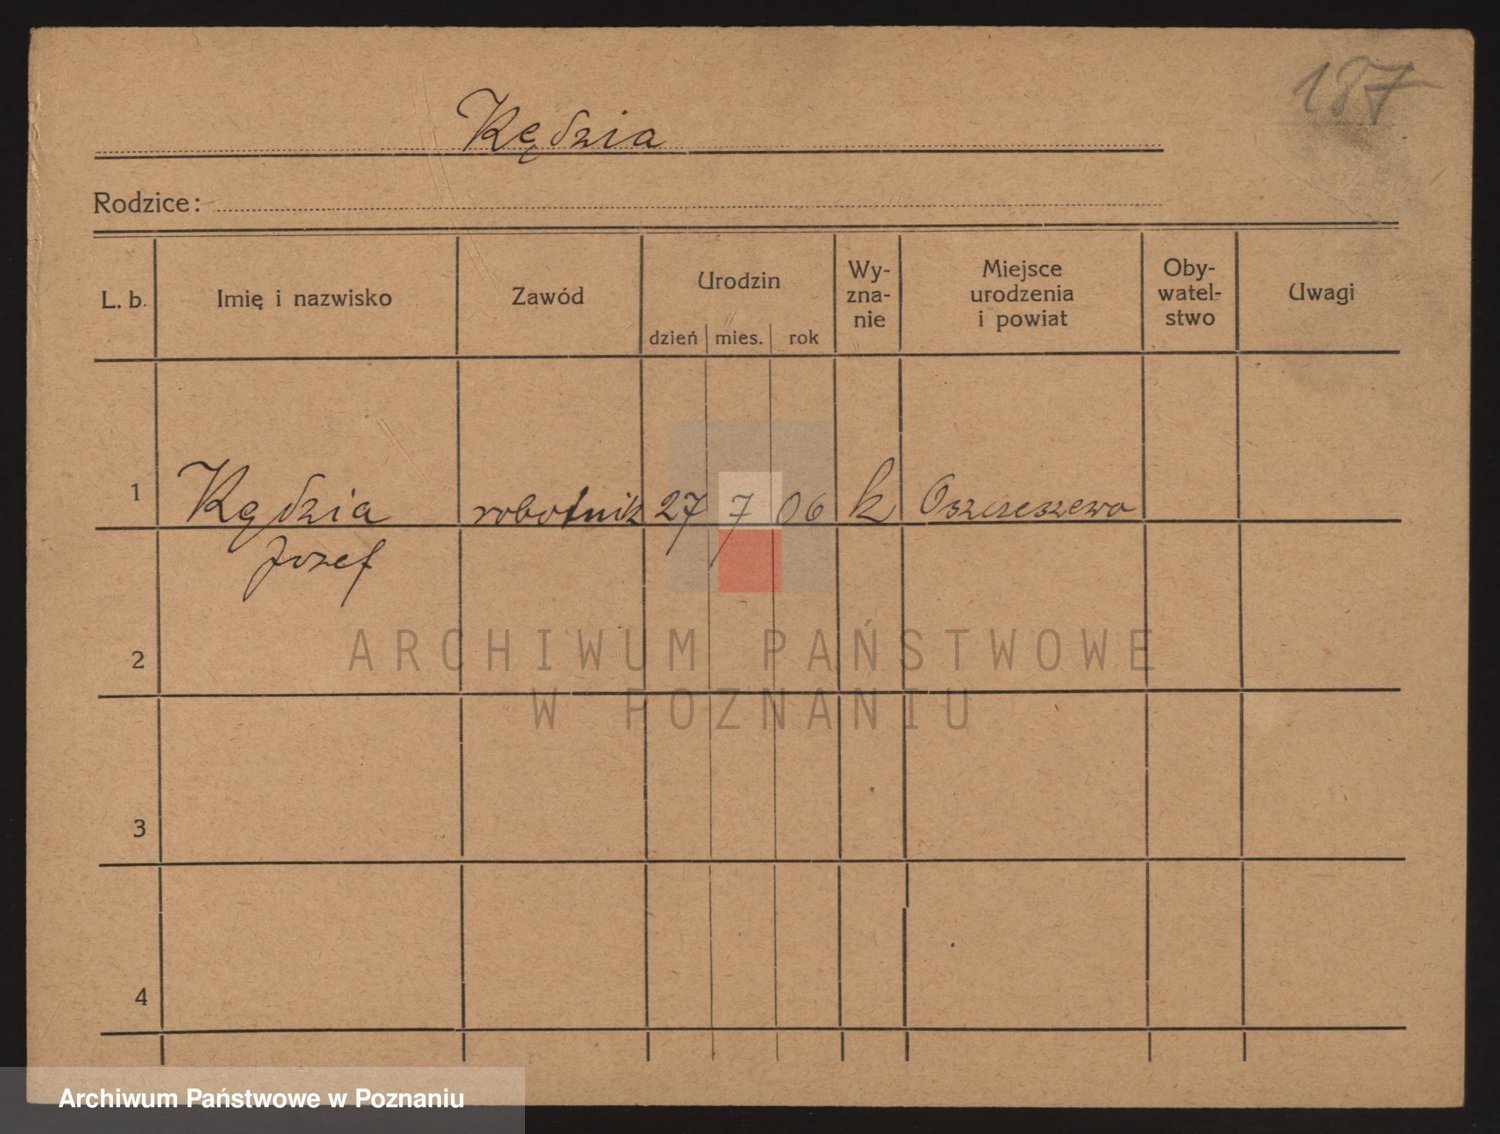 187
Kędzia
Rodzice:
L. b.
Imię i nazwisko
Zawód
Urodzin
dzień mies. rok
Wy-
zna-
nie
Miejsce
urodzenia
i powiat
Oby-
watel-
stwo
Uwagi
1 Kędzia robotnik 27 7 06 k
Józef
2
3
4
ARCHIWUM PAŃSTWOWE
W POZNANIU
Archiwum Państwowe w Poznaniu